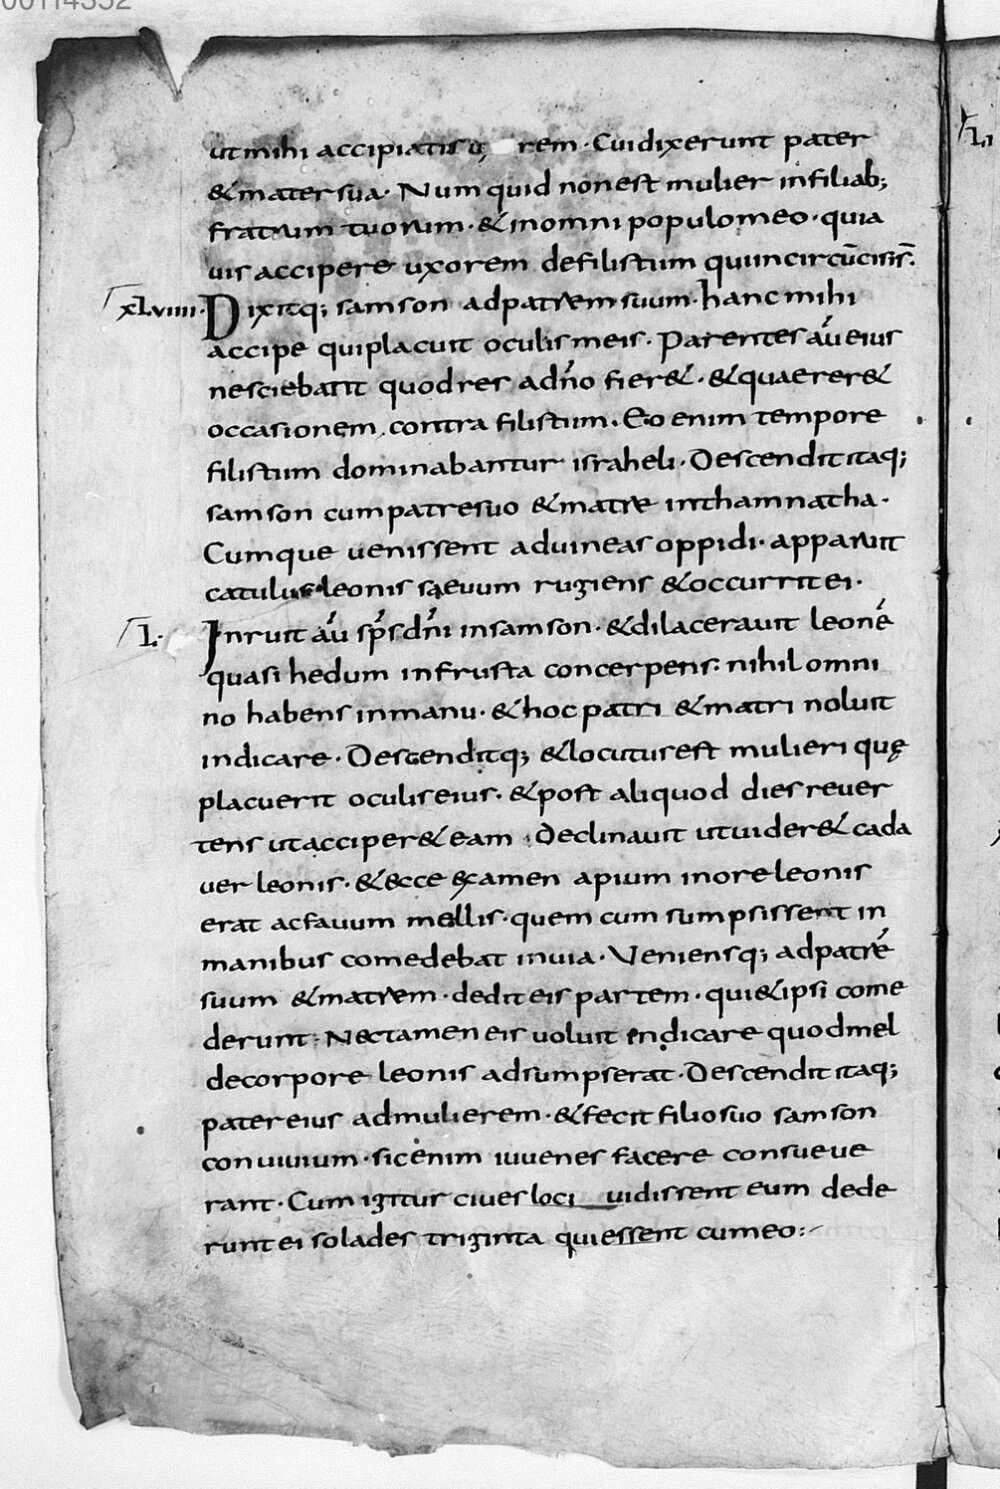 00114352
ut mihi accipiatis rem · Cui dixerunt pater
& mater sua · Num quid non est mulier in filiab;
fratrum tuorum · & in omni populo meo · quia
uis accipere uxorem de filistum qui incircūcisi s̄.
xLviiii · Dixitq; samson ad patrem suum · hanc mihi
accipe qui placuit oculis meis · Parentes aū eius
nesciebant quod res ad dn̄o fier& · & quaerer&
occasionem contra filistum · Eo enim tempore
filistum dominabantur israheli · Descendit itaq;
samson cum patre suo & matre in thamnatha ·
Cumque uenissent ad uineas oppidi · apparuit
catulus leonis saeuum rugiens & occurrit ei ·
L · Inruit aū sp̄s dn̄i in samson · & dilacerauit leonē
quasi hedum in frusta concerpens : nihil omni
no habens in manu · & hoc patri & matri noluit
indicare · Descenditq; & locutus est mulieri quę
placuerit oculis eius · & post aliquod dies reuer
tens ut acciper& eam : Declinauit ut uider& cada
uer leonis · & ecce examen apium in ore leonis
erat ac fauum mellis · quem cum sumpsissent in
manibus comedebat in uia · Veniensq; ad patrē
suum & matrem · dedit eis partem · qui & ipsi come
derunt · Nec tamen eis uoluit indicare quod mel
de corpore leonis adsumpserat · Descendit itaq;
pater eius ad mulierem · & fecit filio suo samson
conuiuium · sic enim iuuenes facere consueue
rant · Cum igitur ciues loci uidissent eum dede
runt ei solades triginta qui essent cum eo :
L i